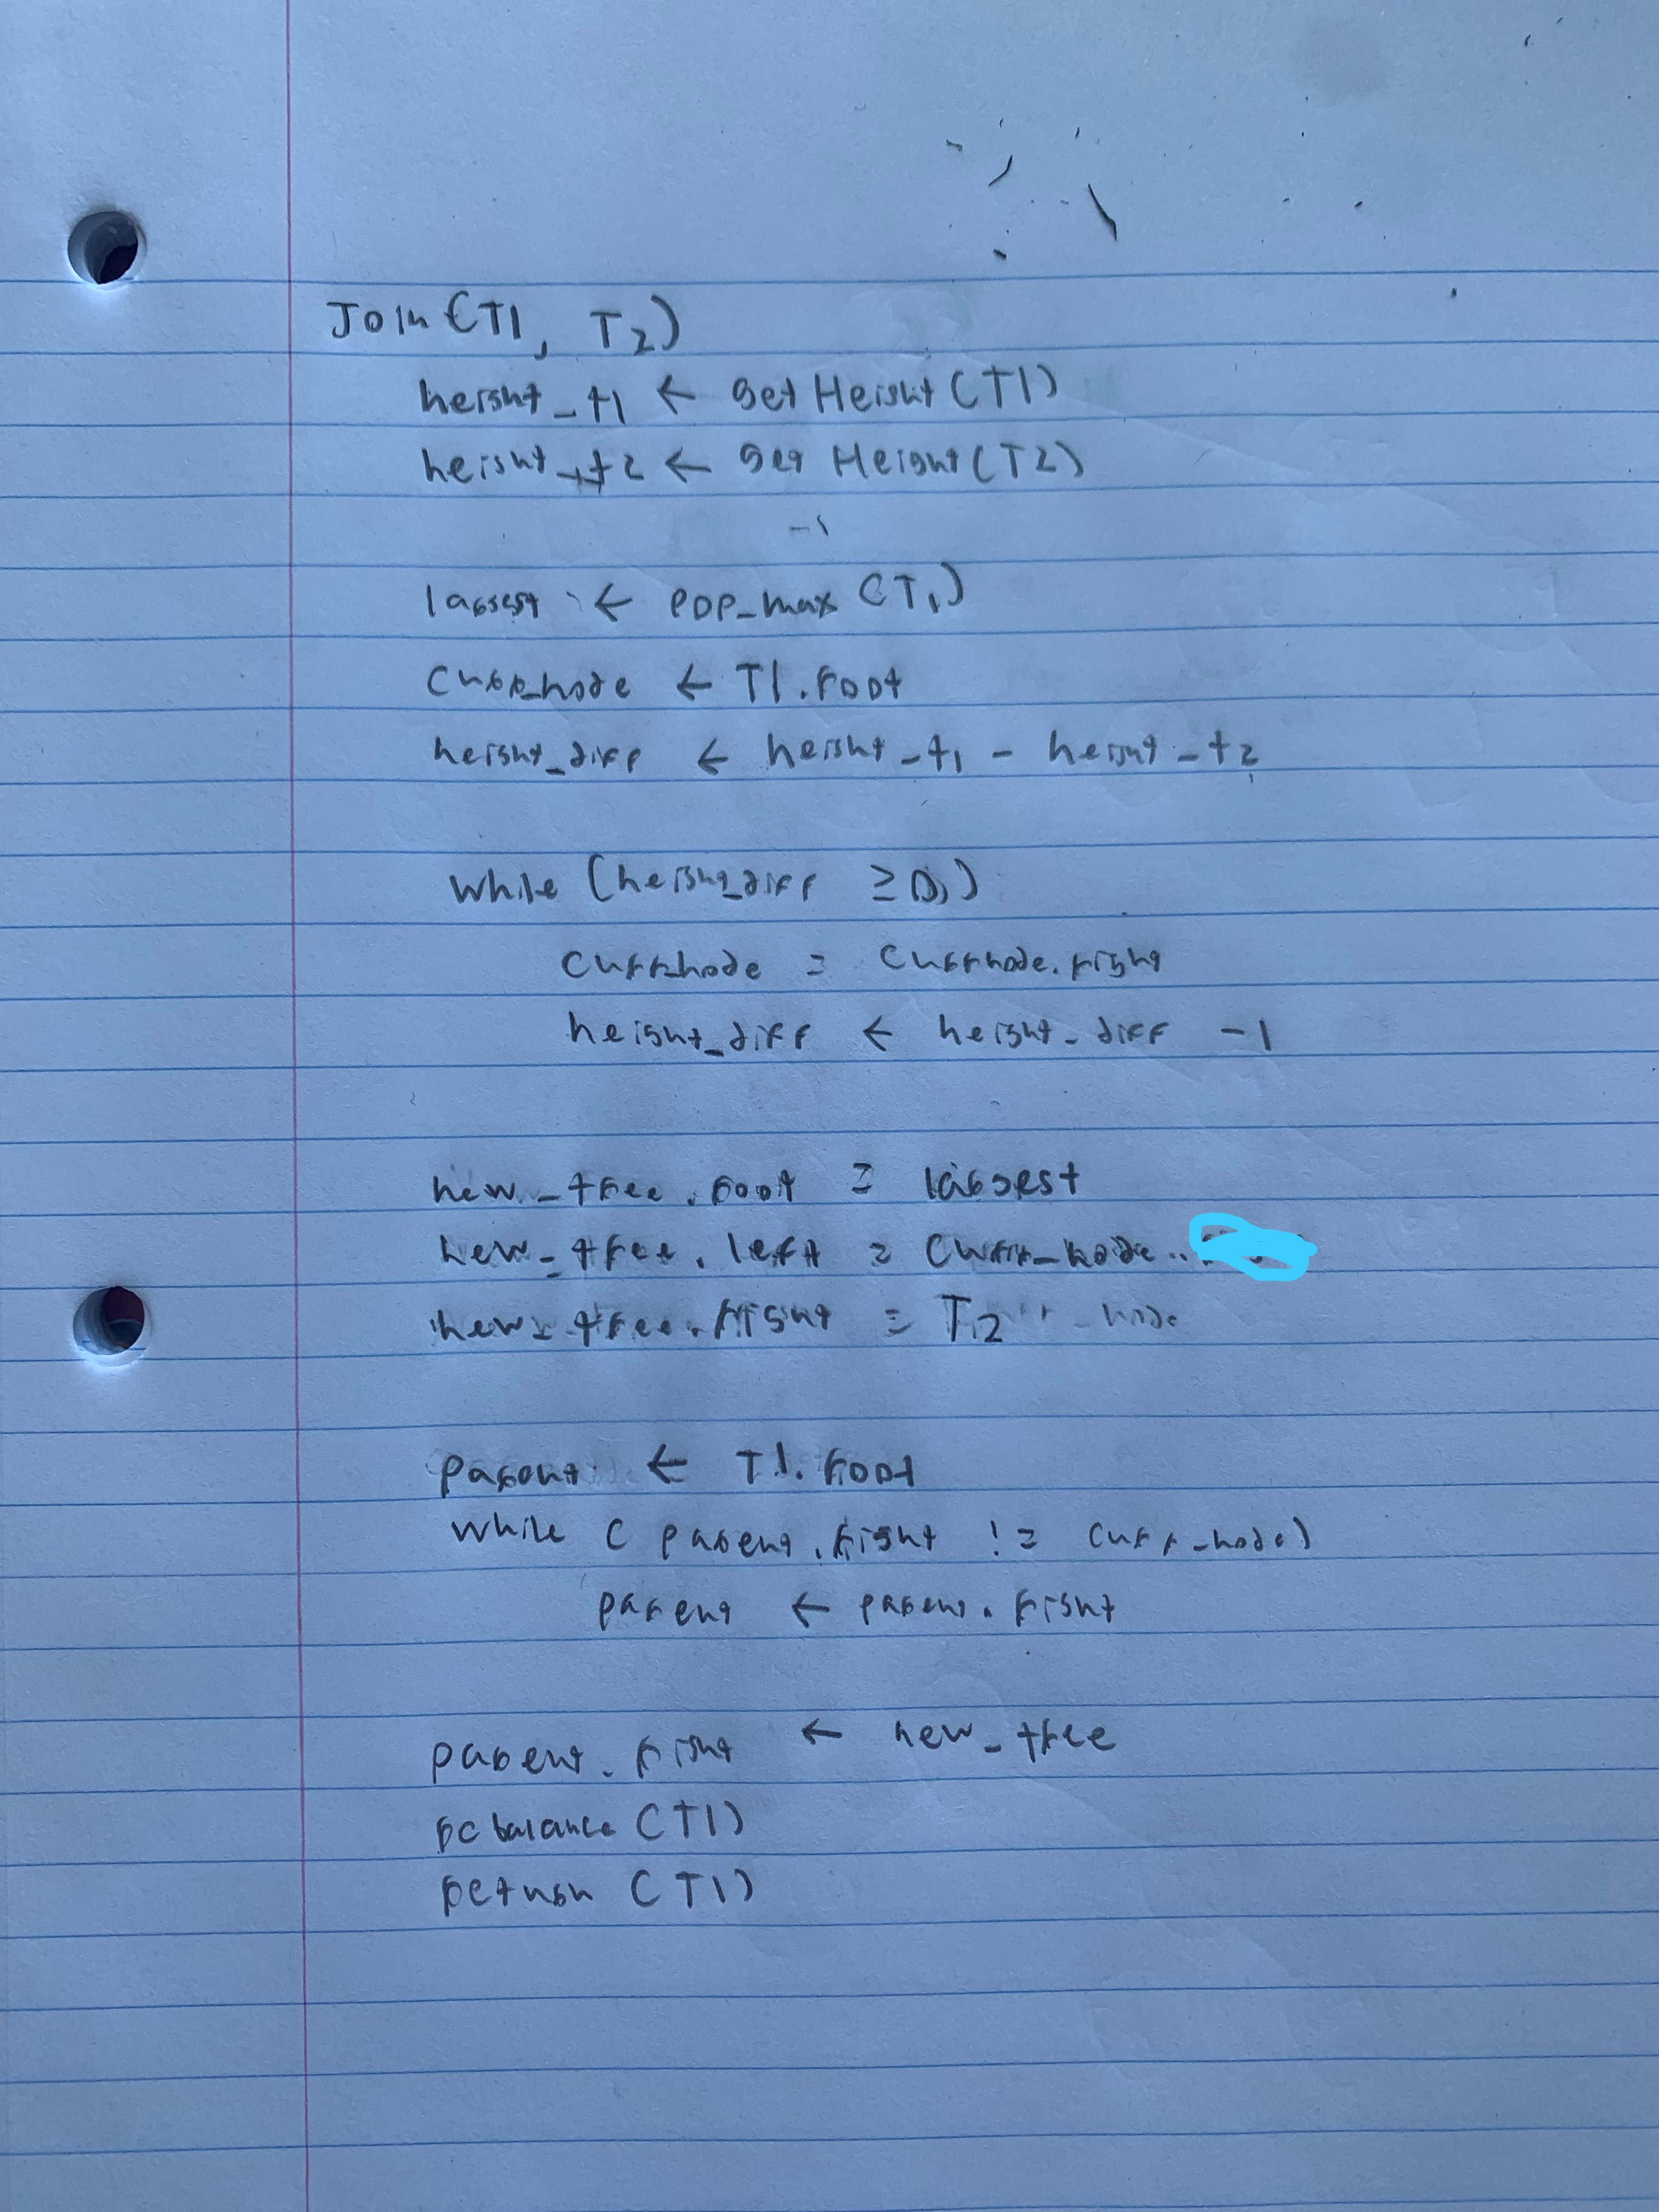 Join (T1, T2)
height_t1 ← get Height (T1)
height_t2 ← get Height (T2)
-1
largest ← pop_max (T1)
curr_node ← T1.root
height_diff ← height_t1 - height_t2
while (height_diff ≥ 0)
curr_node = currnode.right
height_diff ← height_diff -1
new_tree.root = largest
new_tree.left = curr_node.
new_tree.right = T2
parent ← T1.root
while (parent.right != curr_node)
parent ← parent.right
parent.right ← new_tree
rebalance (T1)
return (T1)